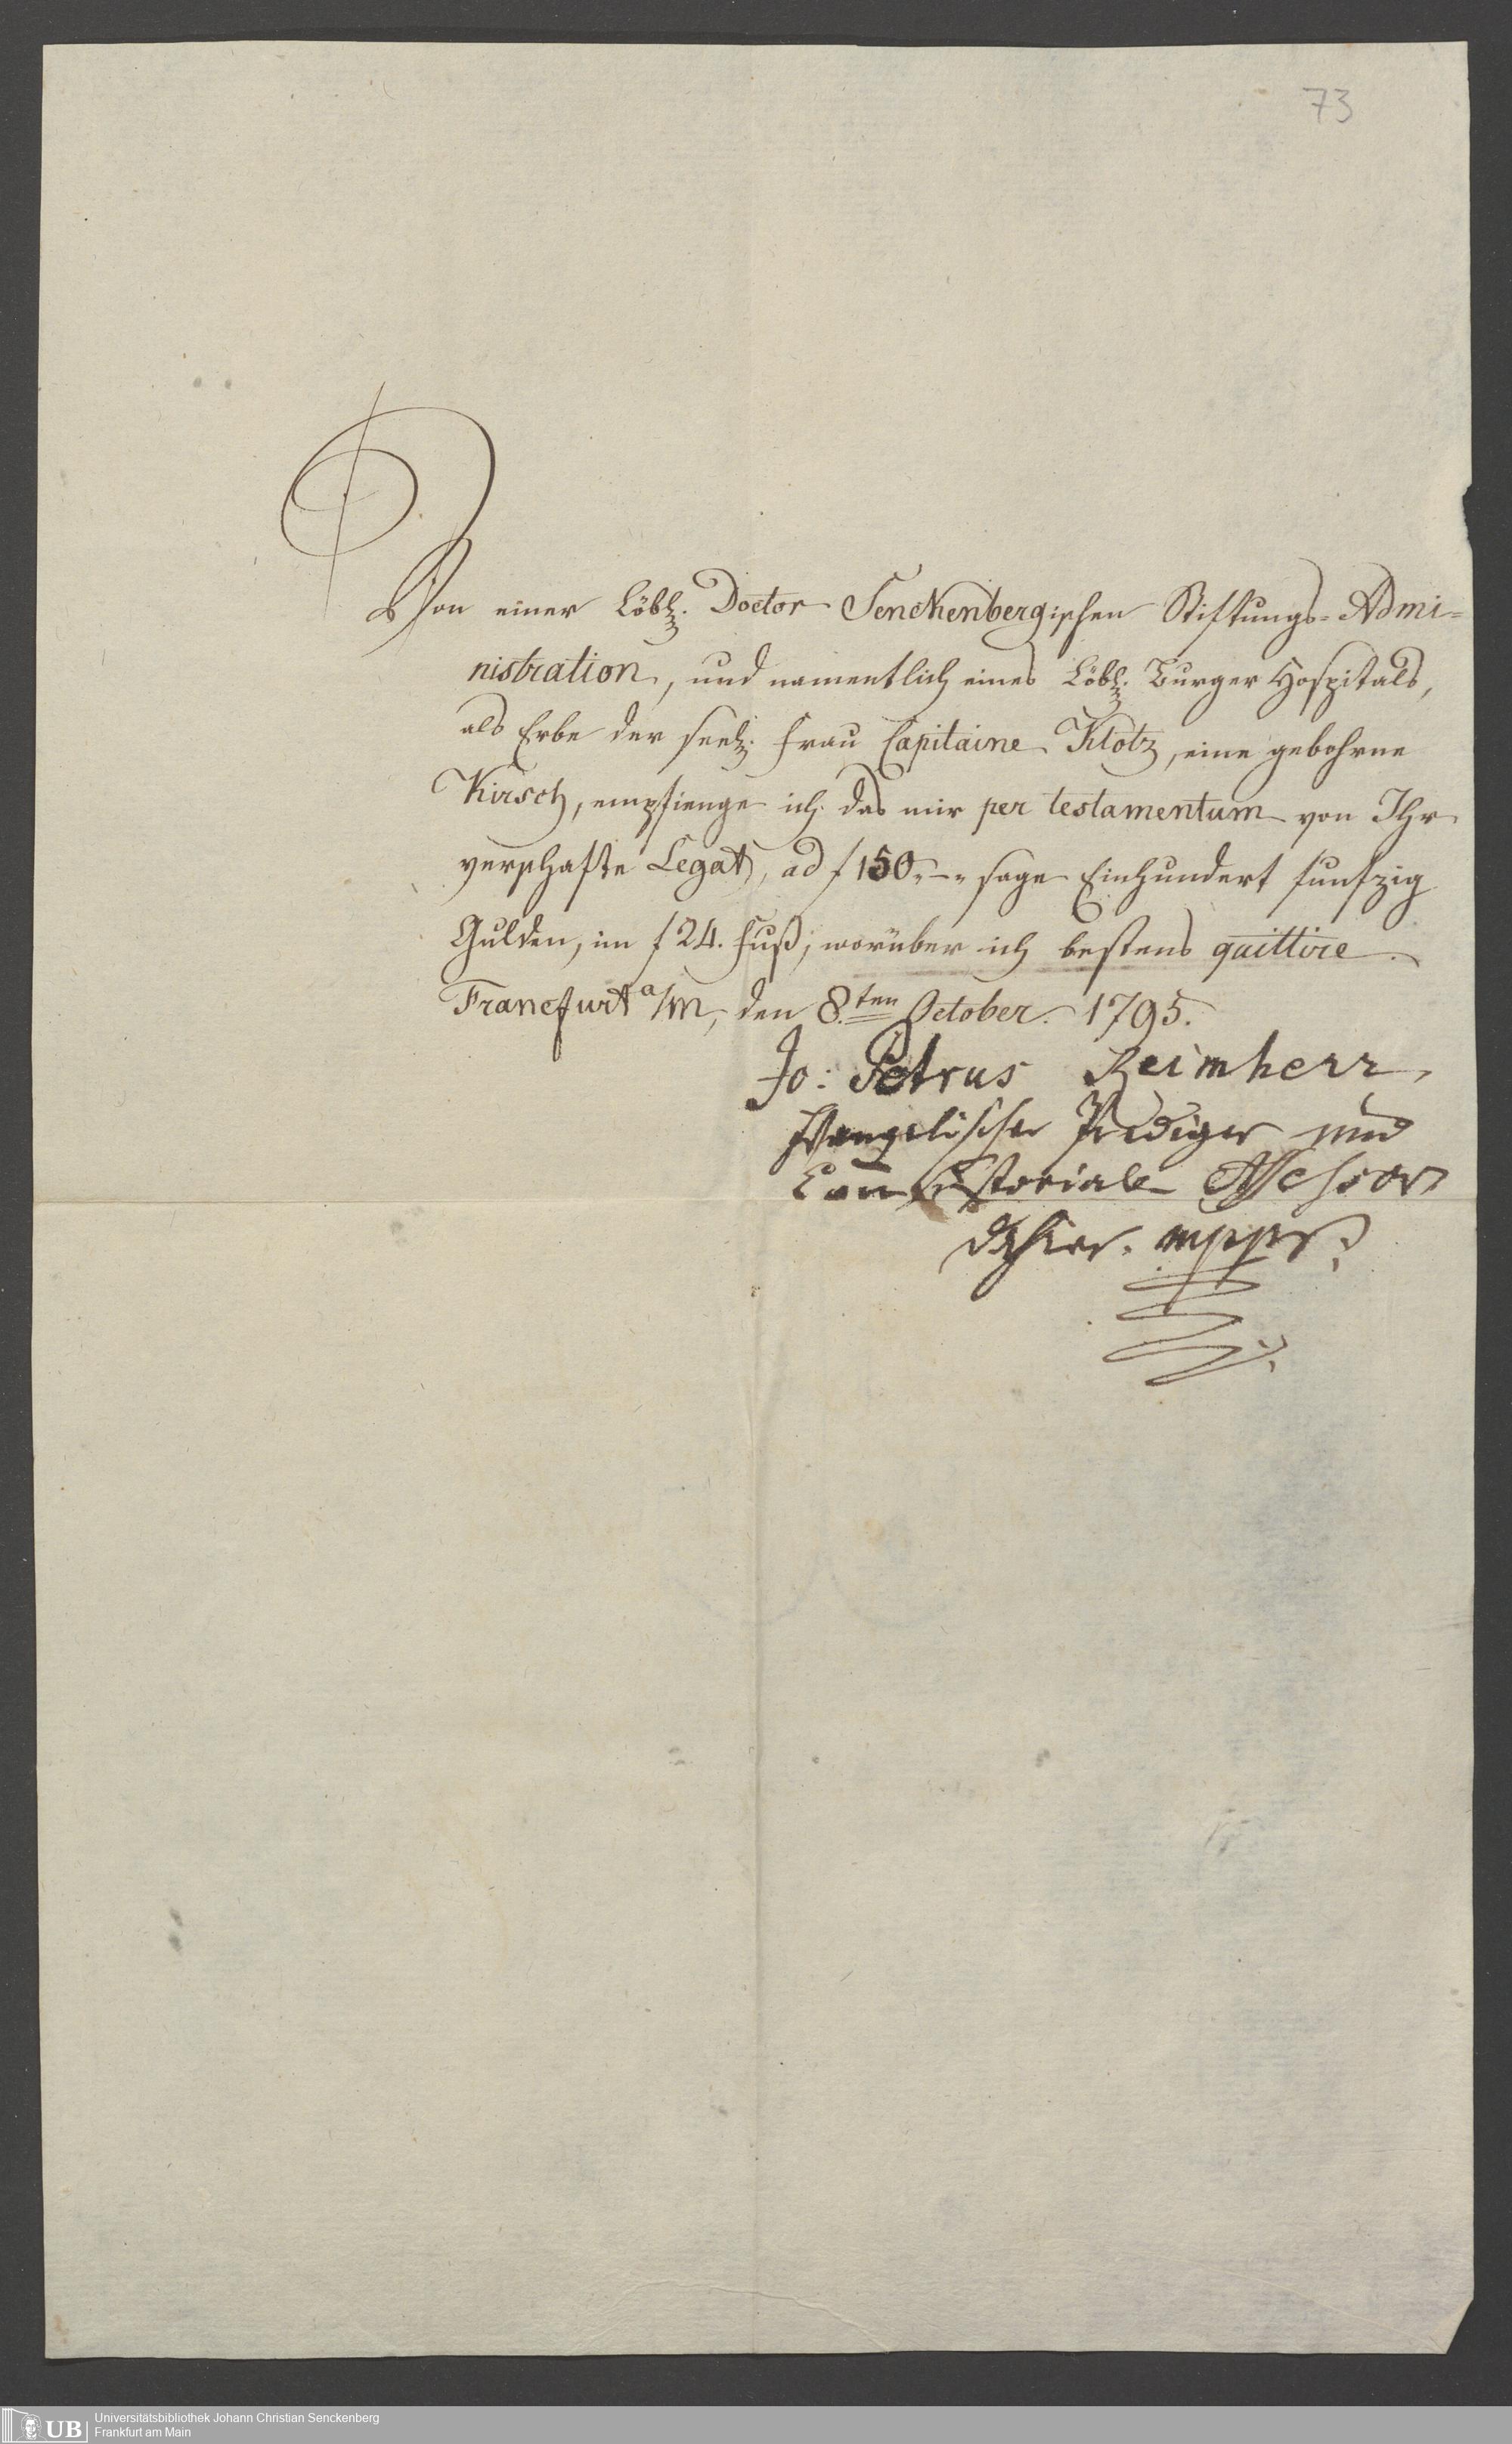 73
Von einer Löbl. Doctor Senckenbergischen Stiftungs-Admi-
nistration, und namentlich eines Löbl. Burger Hospitals,
als Erbe der seel. Frau Capitaine Klotz, eine gebohrne
Kirsch, empfienge ich das mir per testamentum von Ihr
verschafte Legat, ad f 150.,-., sage Einhundert funfzig
Gulden, im f 24. Fuß, worüber ich bestens quittire.
Francfurt a/m, den 8.ten October. 1795.
Jo: Petrus Reimherr,
Evangelischer Prediger und
Consistorial Assessor
dahier. mppr.
UB
Universitätsbibliothek Johann Christian Senckenberg
Frankfurt am Main